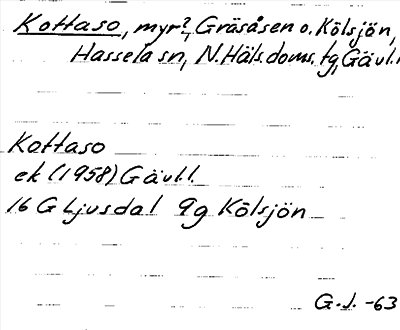 Kottaso, myr?, Gräsåsen o. Kölsjön,
Hassela sn, N. Häls. doms. tg, Gäul. l.
Kottaso
ek (1958) Gäul. l.
16 G Ljusdal 9g Kölsjön
G. J. -63